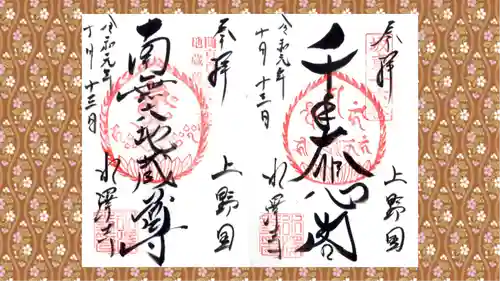 奉拝
上野国
千手大悲殿
令和元年
十月十三日
水澤寺
奉拝
上野国
南無六地蔵尊
令和元年
十月十三日
水澤寺